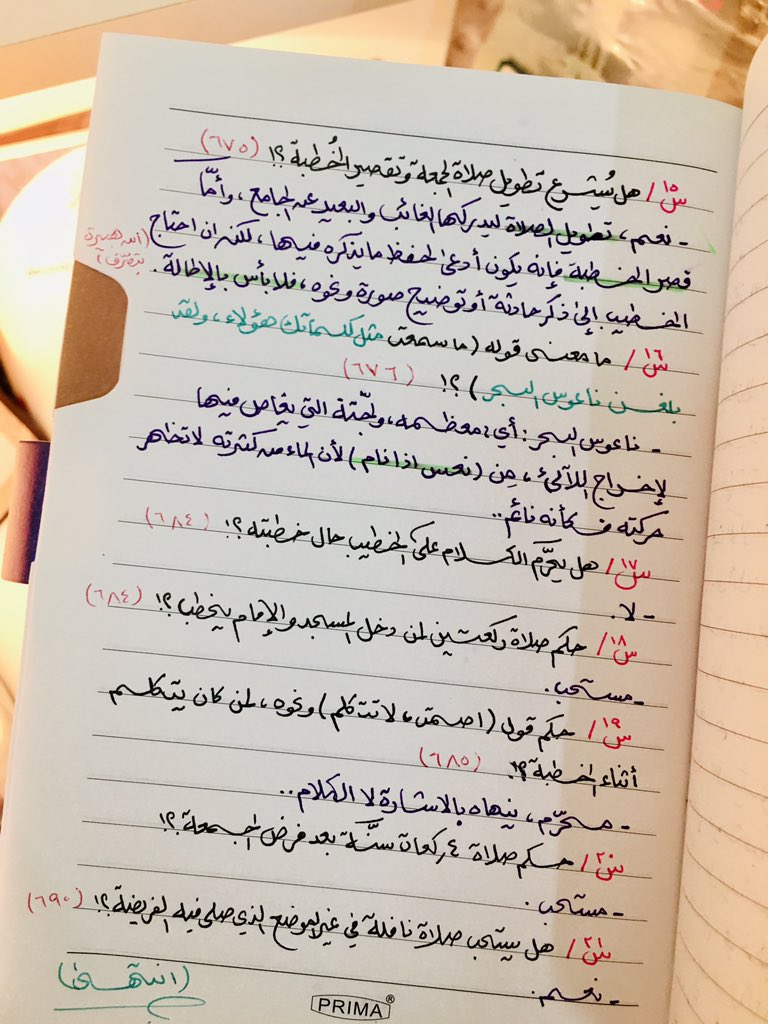 س١٥/ هل يُشرع تطويل صلاة الجمعة وتقصير الخُطبة؟! (٦٧٥)
- نعم، تطويل الصلاة ليدركها الغائب والبعيد عن الجامع، وأمّا
قصر الخطبة فإنه يكون أدعى لحفظ ما يذكره فيها، لكنه ان احتاج
الخطيب إلى ذكر حادثة أو توضيح صورة ونحوه، فلا بأس بالإطالة.
(ابن هبيرة
بتصرّف)
س١٦/ ما معنى قوله (ما سمعت مثل كلماتك هؤلاء، ولقد
بلغن ناعوس البحر)؟! (٦٧٦)
- ناعوس البحر: أي: معظمه، ولجّته التي يغاص فيها
لإخراج اللآلئ، من (نعس اذا نام) لأن الماء من كثرته لا تظهر
حركته فكأنه نائم..
س١٧/ هل يحرّم الكلام على الخطيب حال خطبته؟! (٦٨٤)
- لا.
س١٨/ حكم صلاة ركعتين لمن دخل المسجد والإمام يخطب؟! (٦٨٤)
- مستحب.
س١٩/ حكم قول (اصمت، لا تتكلم) ونحوه، لمن كان يتكلم
أثناء الخطبة؟! (٦٨٥)
- محرّم، ينهاه بالاشارة لا الكلام..
س٢٠/ حكم صلاة ٤ ركعات سنَّة بعد فرض الجمعة؟!
- مستحب.
س٢١/ هل يستحب صلاة نافلة في غير الموضع الذي صلى فيه الفريضة؟! (٦٩٠)
- نعم.
(انتهى)
PRIMA®